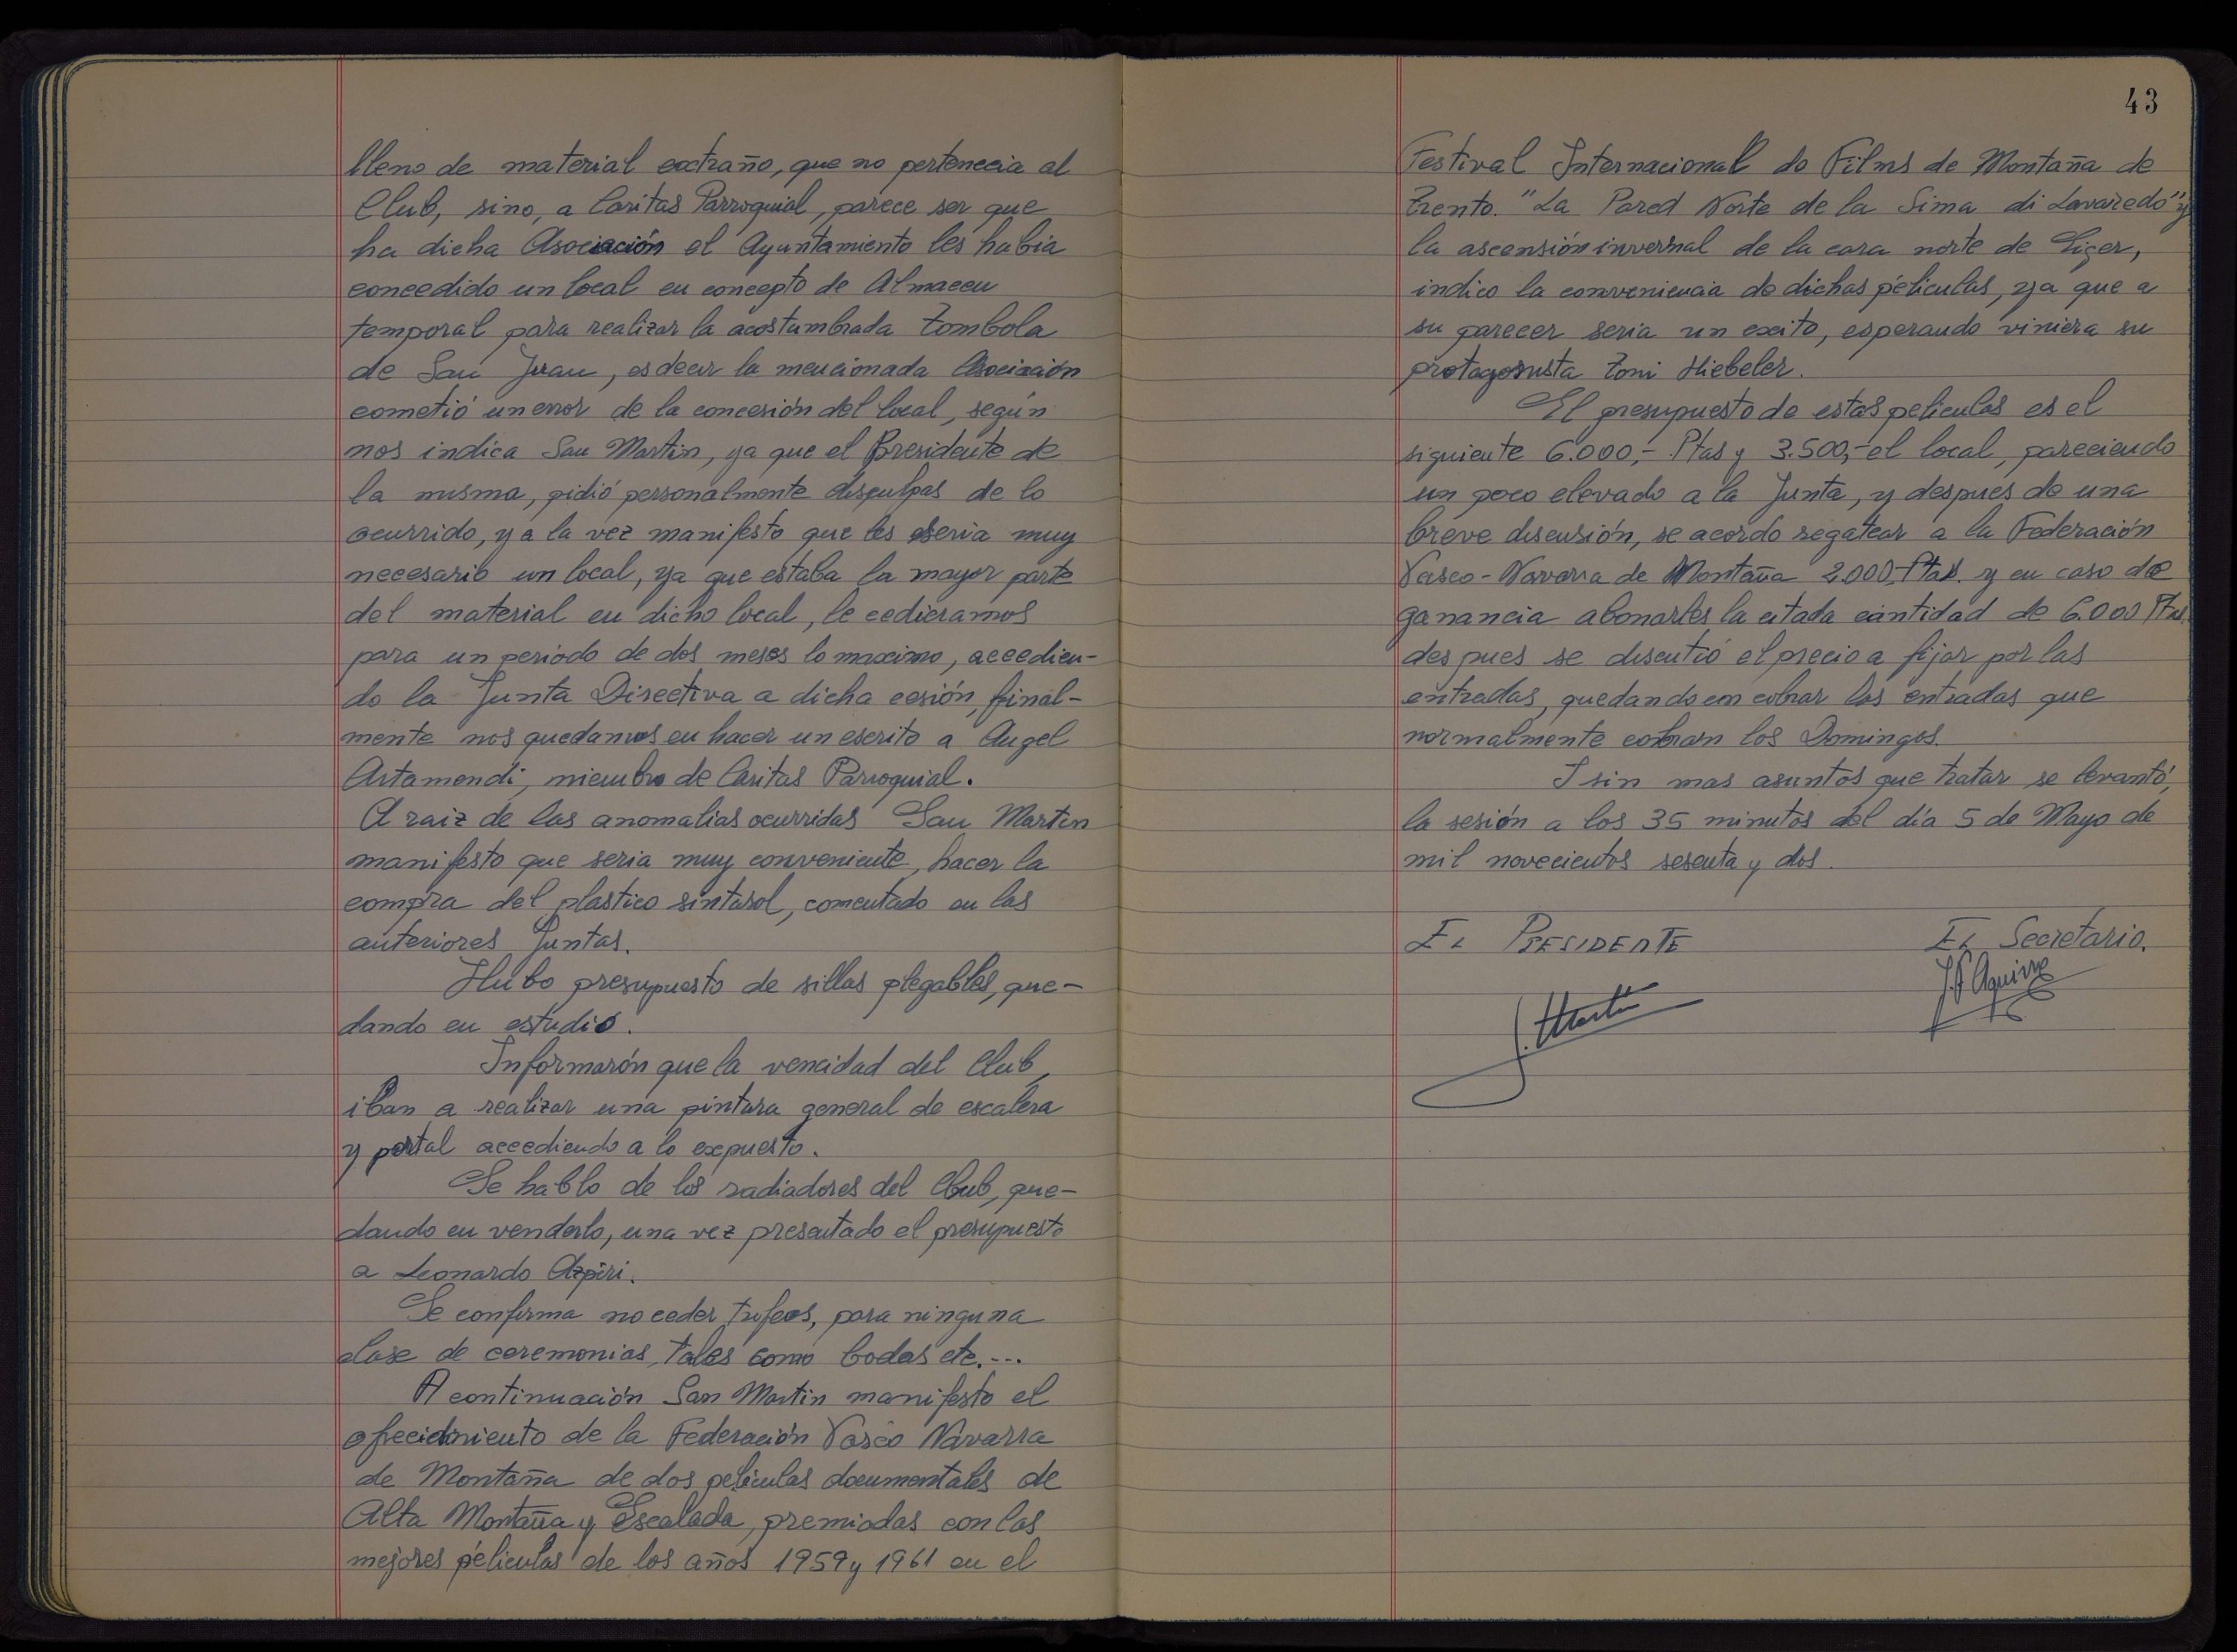 lleno de material extraño, que no pertenecia al
Club, sino, a Caritas Parroquial, parece ser que
ha dicha Asociación el Ayuntamiento les habia
concedido un local en concepto de Almacen
temporal para realizar la acostumbrada Tombola
de San Juan, es decir la mencionada Asociación
cometió un error de la concesión del local, según
nos indica San Martin, ya que el Presidente de
la misma, pidió personalmente disculpas de lo
ocurrido, y a la vez manifesto que les seria muy
necesario un local, ya que estaba la mayor parte
del material en dicho local, le cedieramos
para un periodo de dos meses lo maximo, accedien-
do la Junta Directiva a dicha cesión, final-
mente nos quedamos en hacer un escrito a Angel
Artamendi, miembro de Caritas Parroquial.
A raiz de las anomalias ocurridas San Martin
manifesto que seria muy conveniente, hacer la
compra del plastico sintasol, comentado en las
anteriores Juntas.
Hubo presupuesto de sillas plegables, que-
dando en estudio.
Informarón que la vencidad del Club,
iban a realizar una pintura general de escalera
y portal accediendo a lo expuesto.
Se hablo de los radiadores del Club, que-
dando en venderlo, una vez presentado el presupuesto
a Leonardo Azpiri.
Se confirma no ceder trofeos, para ninguna
clase de ceremonias, tales como bodas etc.---
A continuación San Martin manifesto el
ofrecidmiento de la Federación Vasco Navarra
de Montaña de dos peliculas documentales de
Alta Montaña y Escalada, premiadas con las
mejores peliculas de los años 1959 y 1961 en el
43
Festival Internacional de Films de Montaña de
Trento. "La Pared Norte de la Sima di Lavaredo" y
la ascensión invernal de la cara norte de Eiger,
indico la conveniencia de dichas péliculas, ya que a
su parecer seria un exito, esperando viniera su
protagonista Toni Hiebeler.
El presupuesto de estas peliculas es el
siguiente 6.000,- Ptas y 3.500,- el local, pareciendo
un poco elevado a la Junta, y despues de una
breve discusión, se acordo regatear a la Federación
Vasco-Navarra de Montaña 2.000,- Ptas. y en caso de
ganancia abonarles la citada cantidad de 6.000 Ptas.
des pues se discutió el precio a fijar por las
entradas, quedando en cobrar las entradas que
normalmente cobran los Domingos.
I sin mas asuntos que tratar se levantó,
la sesión a los 35 minutos del día 5 de Mayo de
mil novecientos sesenta y dos.
EL PRESIDENTE
EL Secretario.
J. S. Martin
J. Aguirre